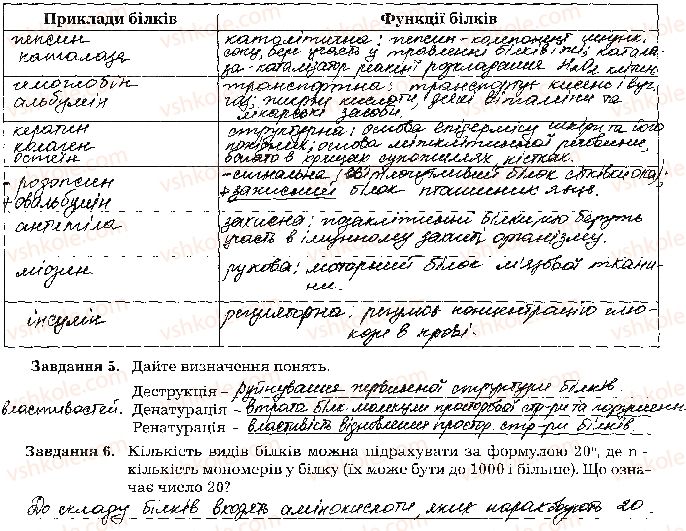 Приклади білків
Функції білків
пепсин
каталаза
каталітична: пепсин - компонент шлунк.
соку, бере участь у травленні білків їжі; катала-
за - каталізатор реакції розкладання H₂O₂ клітин
гемоглобін
альбумін
транспортна: транспортує кисень і вуг.
газ; жирні кислоти, деякі вітаміни та
лікарські засоби.
кератин
колаген
остеїн
структурна: основа епідермісу шкіри та його
похідних; основа міжклітинної речовини,
багато в хрящах, сухожиллях, кістках.
- родопсин
+ овальбумін
- сигнальна (світлочутливий білок сітківки ока);
+ захисний білок пташиних яєць.
антитіла
захисна: позаклітинні білки, що беруть
участь в імунному захисті організму.
міозин
рухова: моторний білок м'язової ткани-
ни.
інсулін
регуляторна: регулює концентрацію глю-
кози в крові.
Завдання 5. Дайте визначення понять.
Деструкція – руйнування первинної структури білків
властивостей. Денатурація – втрата білк. молекули просторової стр-ри та
Ренатурація – властивість відновлення простор. стр-ри білків.
Завдання 6. Кількість видів білків можна підрахувати за формулою 20ⁿ, де n -
кількість мономерів у білку (їх може бути до 1000 і більше). Що озна-
чає число 20?
До складу білків входять амінокислоти, яких нараховують 20.
vshkole.com